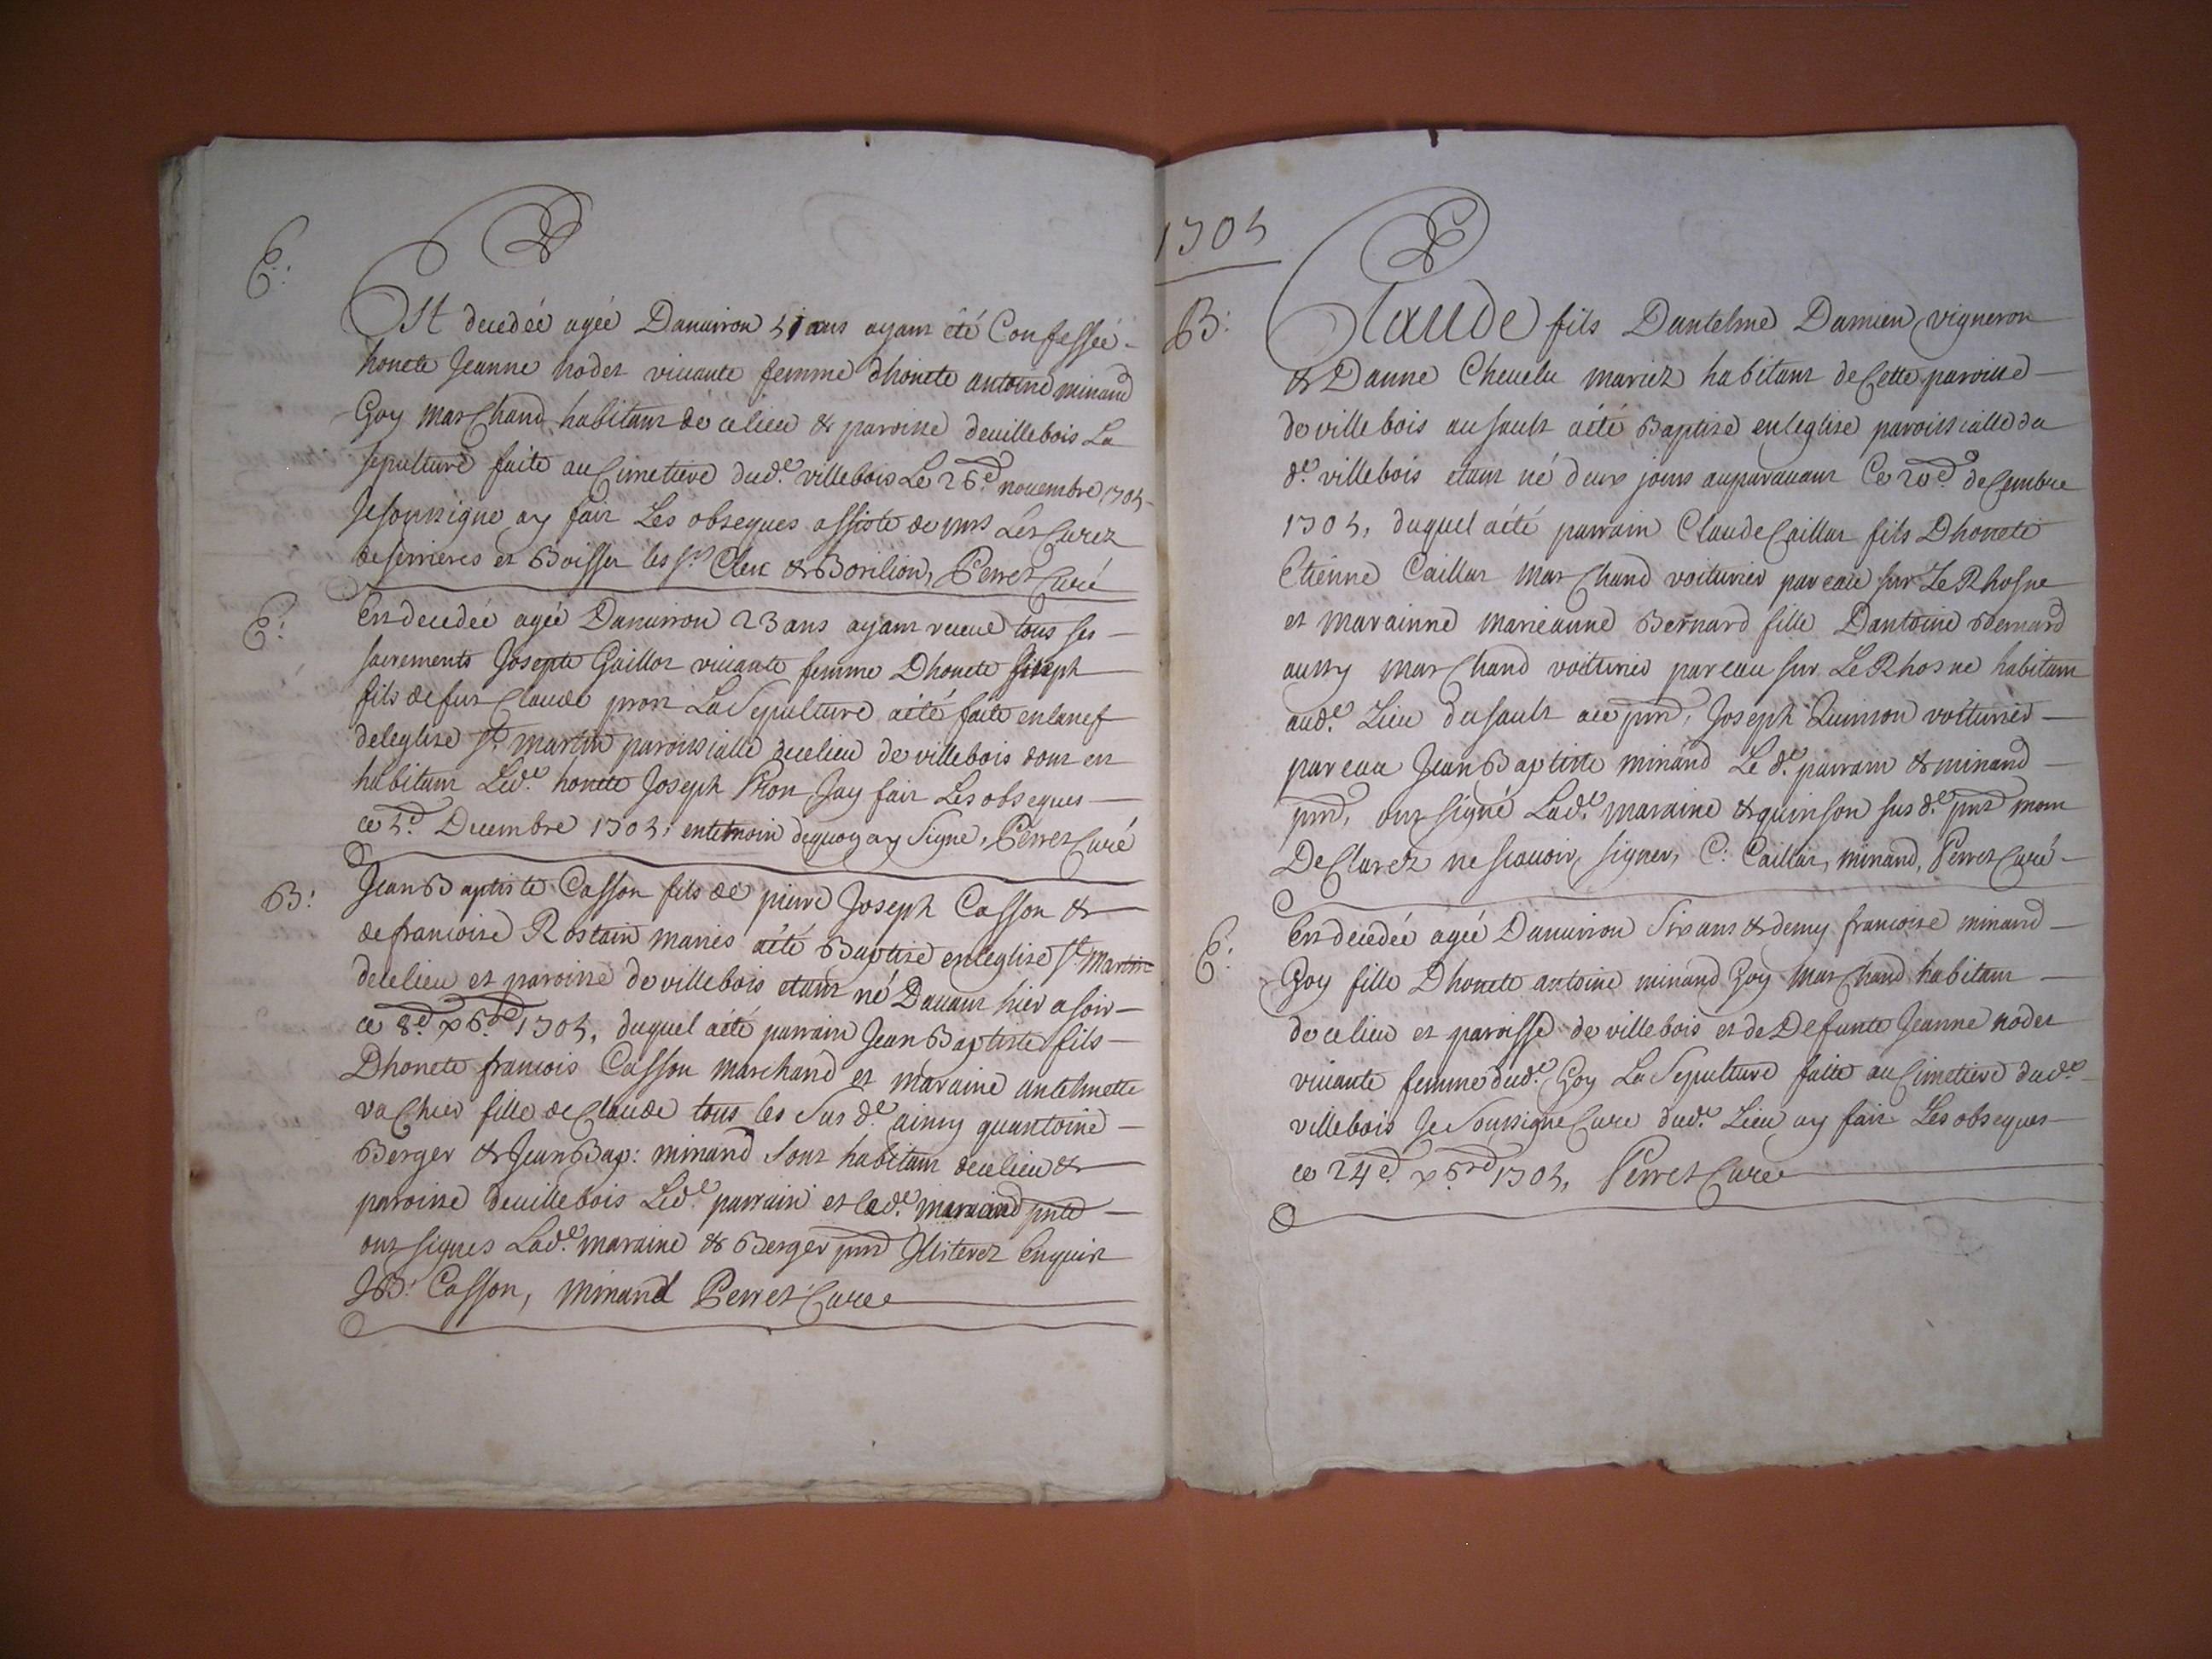 E:
Est decedée agée Danuiron 51 ans ayant été Confessée
honete Jeanne nodet viuante femme dhonete antoine minand
Goy marChand habitant de celieu & paroisse deuillebois La
sepulture faite au Cimetiere dud.e villebois Le 26.e nouembre 1705
Jesoussigne ay fait Les obseques assisté de mrs Les Curez
deserrieres et Boisset les srs Clerc & Borilion, Perret Curé
E:
Est decedée agée Danuiron 23 ans ayant receue tous ses
sacrements Josepte Guillot viuante femme Dhonete Joseph
fils defut Claude pron LaSepulture aété faite enlanef
deleglise st. martin paroissialle decelieu de villebois dont est
habitant Led.e honete Joseph Pron Jay fait Les obseques
ce 5.e Decembre 1705, entemoin dequoy ay Signe, Perret Curé
B:
Jean Baptiste Casson fils de pierre Joseph Casson &
defrancoise Rostain mariés aété Baptise enleglise st. Martin
decelieu et paroisse de villebois etant né Dauant hier a soir
ce 8.e xb.re 1705, duquel aété parrain Jean Baptiste fils
Dhonete francois Casson marchand et maraine antelmette
vaChier fille de Claude tous les Sus d.e ainsy quantoine
Berger & Jean Bap: minand Sont habitant decelieu &
paroisse deuillebois Led.e parrain et led.e minand pnt
ont signes Lad.e maraine & Berger pnt Illiterez Enquist
JB: Casson, minand Perret Curé
1705
B:
Claude fils Dantelme Damien vigneron
& Danne Cheuelu mariez habitant deCette paroisse
de villebois au sault aété Baptisé enleglise paroissialle du
d.e villebois etant né deux jours auparauant Ce 20.e deCembre
1705, duquel aété parrain Claude Caillat fils Dhonete
Etienne Caillat marChand voiturier pareau sur Le Rhosne
et marainne marieanne Bernard fille Dantoine Bernard
aussy marChand voiturier pareau sur Le Rhosne habitant
aud.e Lieu dusault ace pnt, Joseph Quinson voiturier
pareau Jean Baptiste minand Le d.e parrain & minand
pnt, ont signé Lad.e maraine & quinson sus d.e pnt mont
DeClarez ne scauoir signer, C: Caillat, minand, Perret Curé
E:
Est decedée agée Danuiron Six ans & demy francoise minand
Goy fille Dhonete antoine minand Goy marChand habitant
de celieu et paroisse de villebois et de Defunte Jeanne nodet
viuante femme dud.e Goy LaSepulture faite au Cimetiere dud.e
villebois Je Soussigne Curé dud.e Lieu ay fait Les obseques
ce 24.e xb.re 1705, Perret Curé